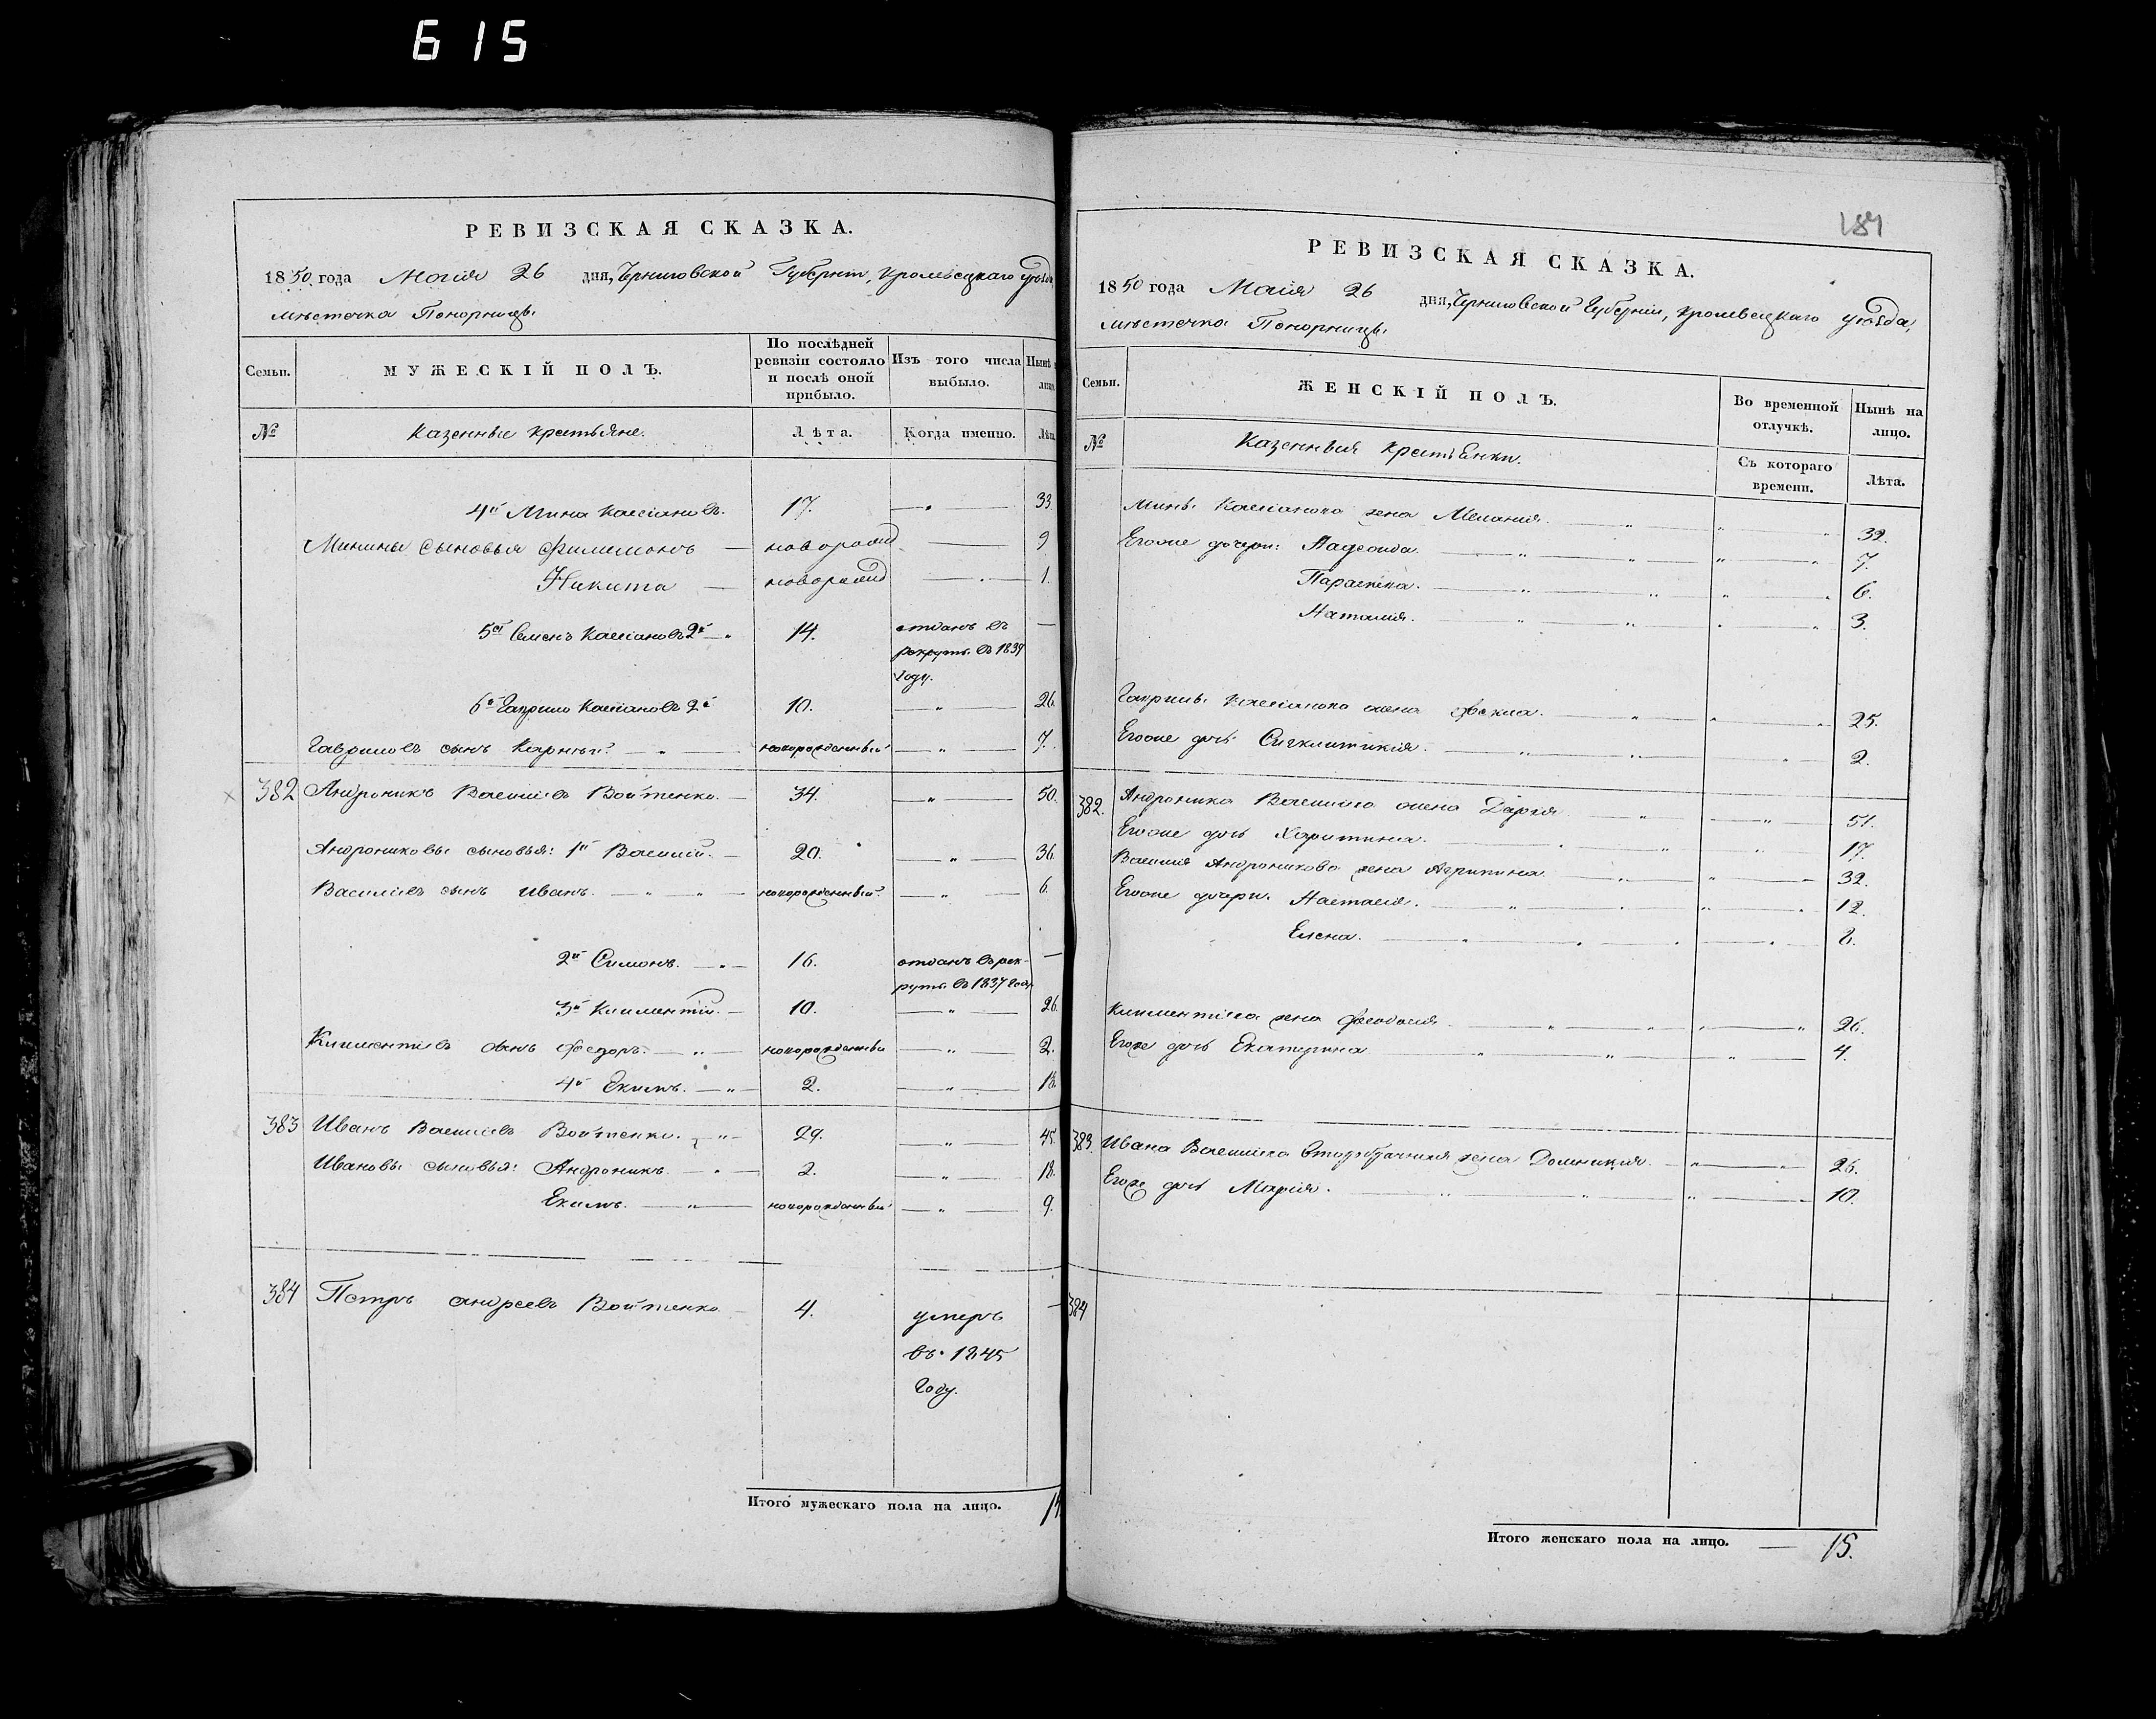 615
РЕВИЗСКАЯ СКАЗКА.
1850 года Маія 26 дня, Черниговской Губерніи, Кролевецкаго уѣзда,
мѣстечка Понорницы.
Семьи. МУЖЕСКІЙ ПОЛЪ. По послѣдней ревизіи состояло и послѣ оной прибыло. Изъ того числа выбыло. Нынѣ на лицо.
№ Казенные крестьяне. Лѣта. Когда именно. Лѣта
4й Мина Касіановъ. 17. — " — 33.
Минины сыновья Филимонъ — новорожд — 9
Никита — новорожд — " — 1.
5й Семенъ Касіановъ 2й — " 14. отданъ въ —
рекруты въ 1839
году.
6й Гаврило Касіановъ 2й 10. — " — 26.
Гавриловъ сынъ Карпъ — " — новорожденный — " — 7.
382 Андроникъ Василіевъ Войтенко. — 34. — " — 50.
Андрониковы сыновья: 1й Василій. — 20. — " — 36
Василіевъ сынъ Иванъ. — " — " — новорожденный — " — 6.
2й Симонъ. — " — 16. отданъ въ рек- —
руты въ 1837 году.
3й Климентій. — 10. — " — 26.
Климентіевъ сынъ Федоръ. — " — новорожденный — " — 2.
4й Екимъ. — " — 2. — " — 18.
383 Иванъ Василіевъ Войтенко. — " — 29. — " — 45.
Ивановы сыновья: Андроникъ. — " — 2. — " — 18.
Екимъ. — " — новорожденный — " — 9.
384 Петръ Андреевъ Войтенко — 4. умеръ —
въ 1845
году.
Итого мужескаго пола на лицо. 14.
187
РЕВИЗСКАЯ СКАЗКА.
1850 года Маія 26 дня, Черниговской Губерніи, Кролевецкаго уѣзда,
мѣстечка Понорницы.
Семьи. ЖЕНСКІЙ ПОЛЪ. Во временной отлучкѣ. Нынѣ на лицо.
№ Казенныя крестьянки. Съ котораго времени. Лѣта.
Мины Касіанова жена Меланія. 32.
Егоже дочери: 7.
Параскева. 6.
Наталія. 3.
Гаврилы Касіанова жена Фекла. 25.
Егоже дочь Сигклитикія. 2.
382. Андроника Василіева жена Дарія 51.
Егоже дочь Харитина. 17.
Василія Андроникова жена Агрипина 32.
Егоже дочери. Настасія. 12.
Елена. 8.
Климентіева жена Феодосія 26.
Егоже дочь Екатерина 4.
383. Ивана Василіева второбрачная жена Домникія. 26.
Егоже дочь Марія. 10.
384
Итого женскаго пола на лицо. — 15.